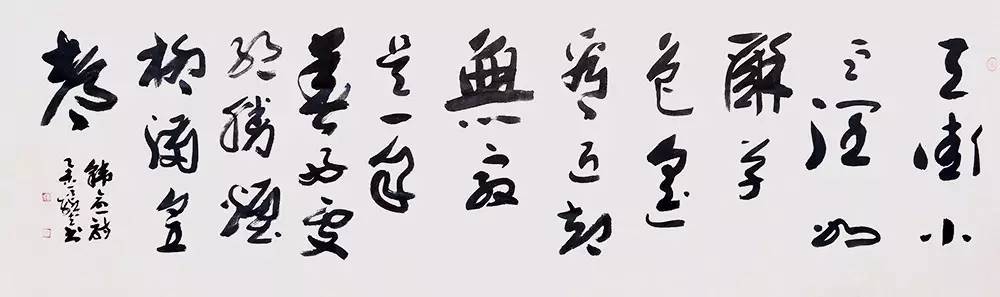 天街小
雨潤如
酥草
色遙
看近却
無最
是一年
春好處
絕勝煙
柳滿皇
都
韓愈詩